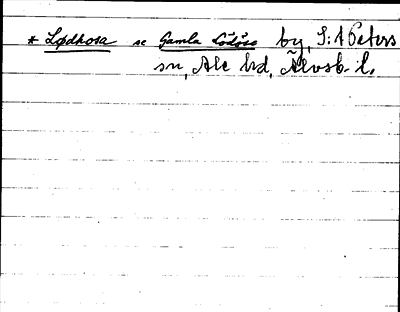 * Lødhosa se Gamla Lödöse by, S:t Peters
sn, Ale hd, Älvsb. l.